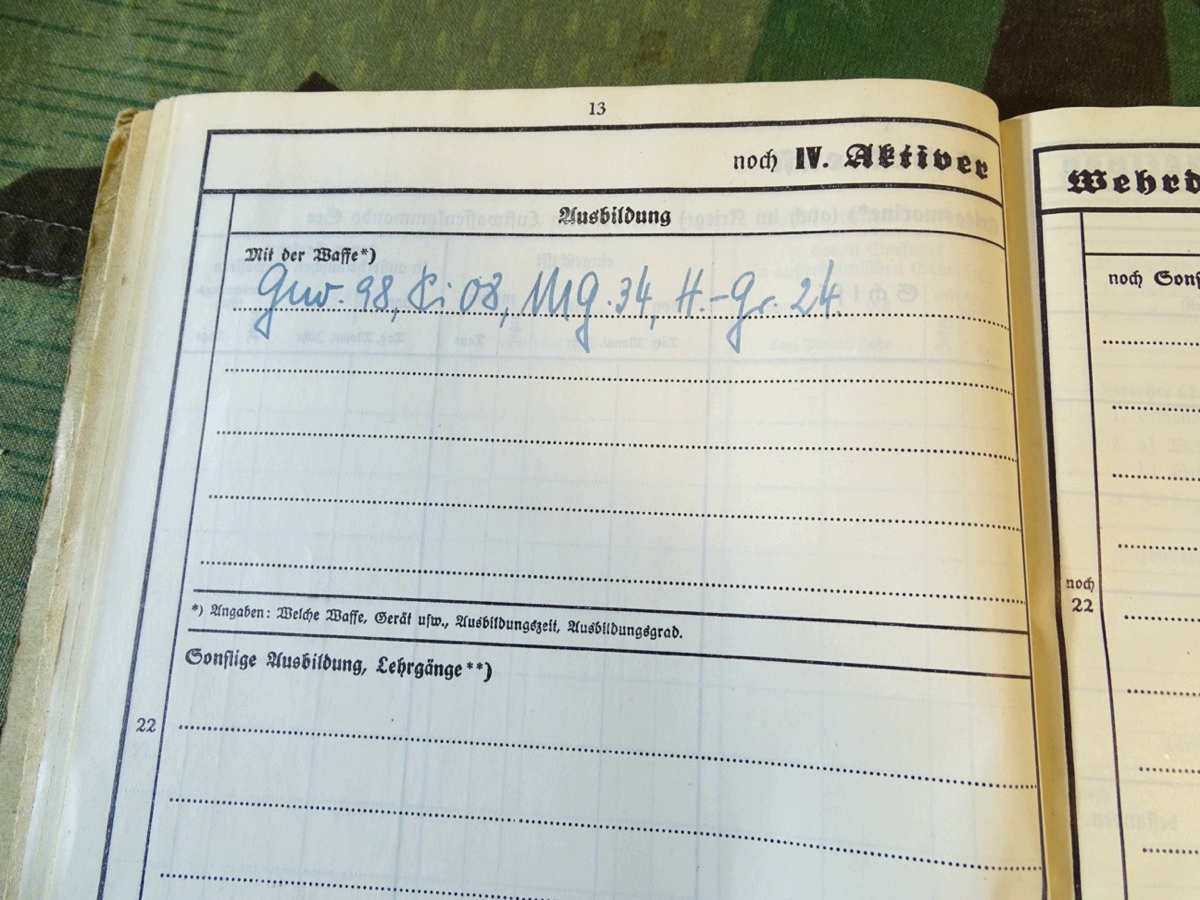 13
noch IV. Aktiver
Ausbildung
Mit der Waffe*)
Gew. 98, Pi 08, MG. 34, H.-Gr. 24.
*) Angaben: Welche Waffe, Gerät usw., Ausbildungszeit, Ausbildungsgrad.
Sonstige Ausbildung, Lehrgänge**)
22
Wehrd
noch Sons
noch
22